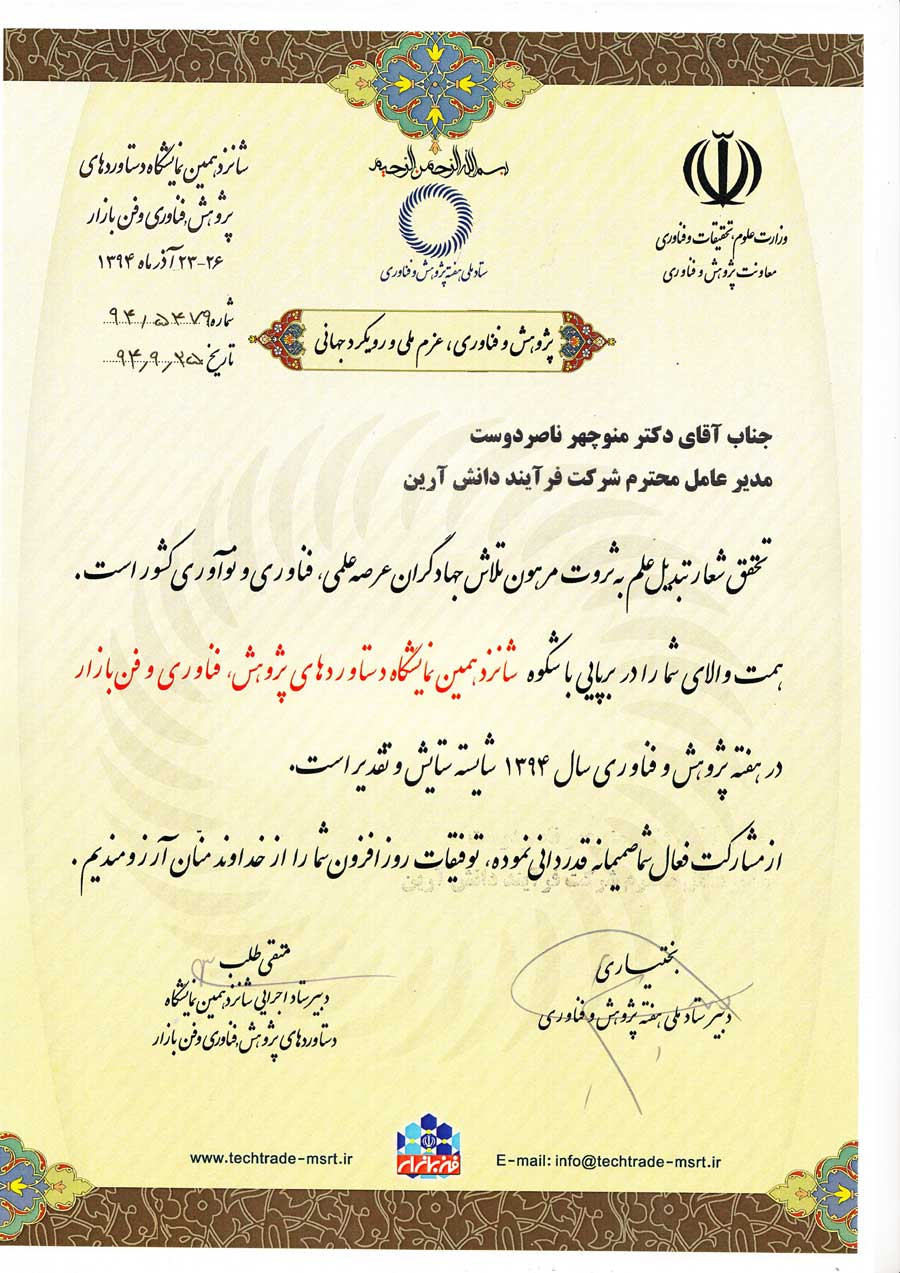 بسم الله الرحمن الرحیم
وزارت علوم، تحقیقات و فناوری
معاونت پژوهش و فناوری
ستاد ملی هفته پژوهش و فناوری
شانزدهمین نمایشگاه دستاوردهای
پژوهش، فناوری و فن بازار
۲۳-۲۶ آذر ماه ۱۳۹۴
شماره ۹۴/۵۴۷۹
تاریخ ۹۴/۹/۲۵
پژوهش و فناوری، عزم ملی و رویکرد جهانی
جناب آقای دکتر منوچهر ناصردوست
مدیر عامل محترم شرکت فرآیند دانش آرین
تحقق شعار تبدیل علم به ثروت مرهون تلاش جهادگران عرصه علمی، فناوری و نوآوری کشور است.
همت والای شما را در برپایی با شکوه شانزدهمین نمایشگاه دستاوردهای پژوهش، فناوری و فن بازار
در هفته پژوهش و فناوری سال ۱۳۹۴ شایسته ستایش و تقدیر است.
از مشارکت فعال شما صمیمانه قدردانی نموده، توفیقات روز افزون شما را از خداوند منّان آرزومندیم.
بختیاری
دبیر ستاد ملی هفته پژوهش و فناوری
متقی طلب
دبیر ستاد اجرایی شانزدهمین نمایشگاه
دستاوردهای پژوهش، فناوری و فن بازار
فن بازار
www.techtrade-msrt.ir
E-mail: info@techtrade-msrt.ir